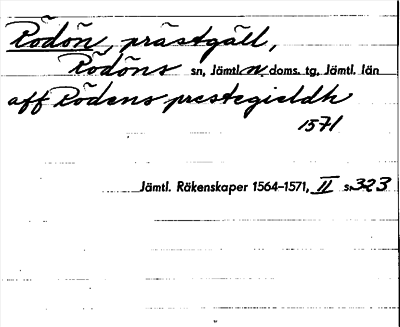 Rödön, prästgäll,
Rödöns sn, Jämtl. n. doms. tg, Jämtl. län
aff Rödens prestegieldh
1571
Jämtl. Räkenskaper 1564-1571, II s. 323